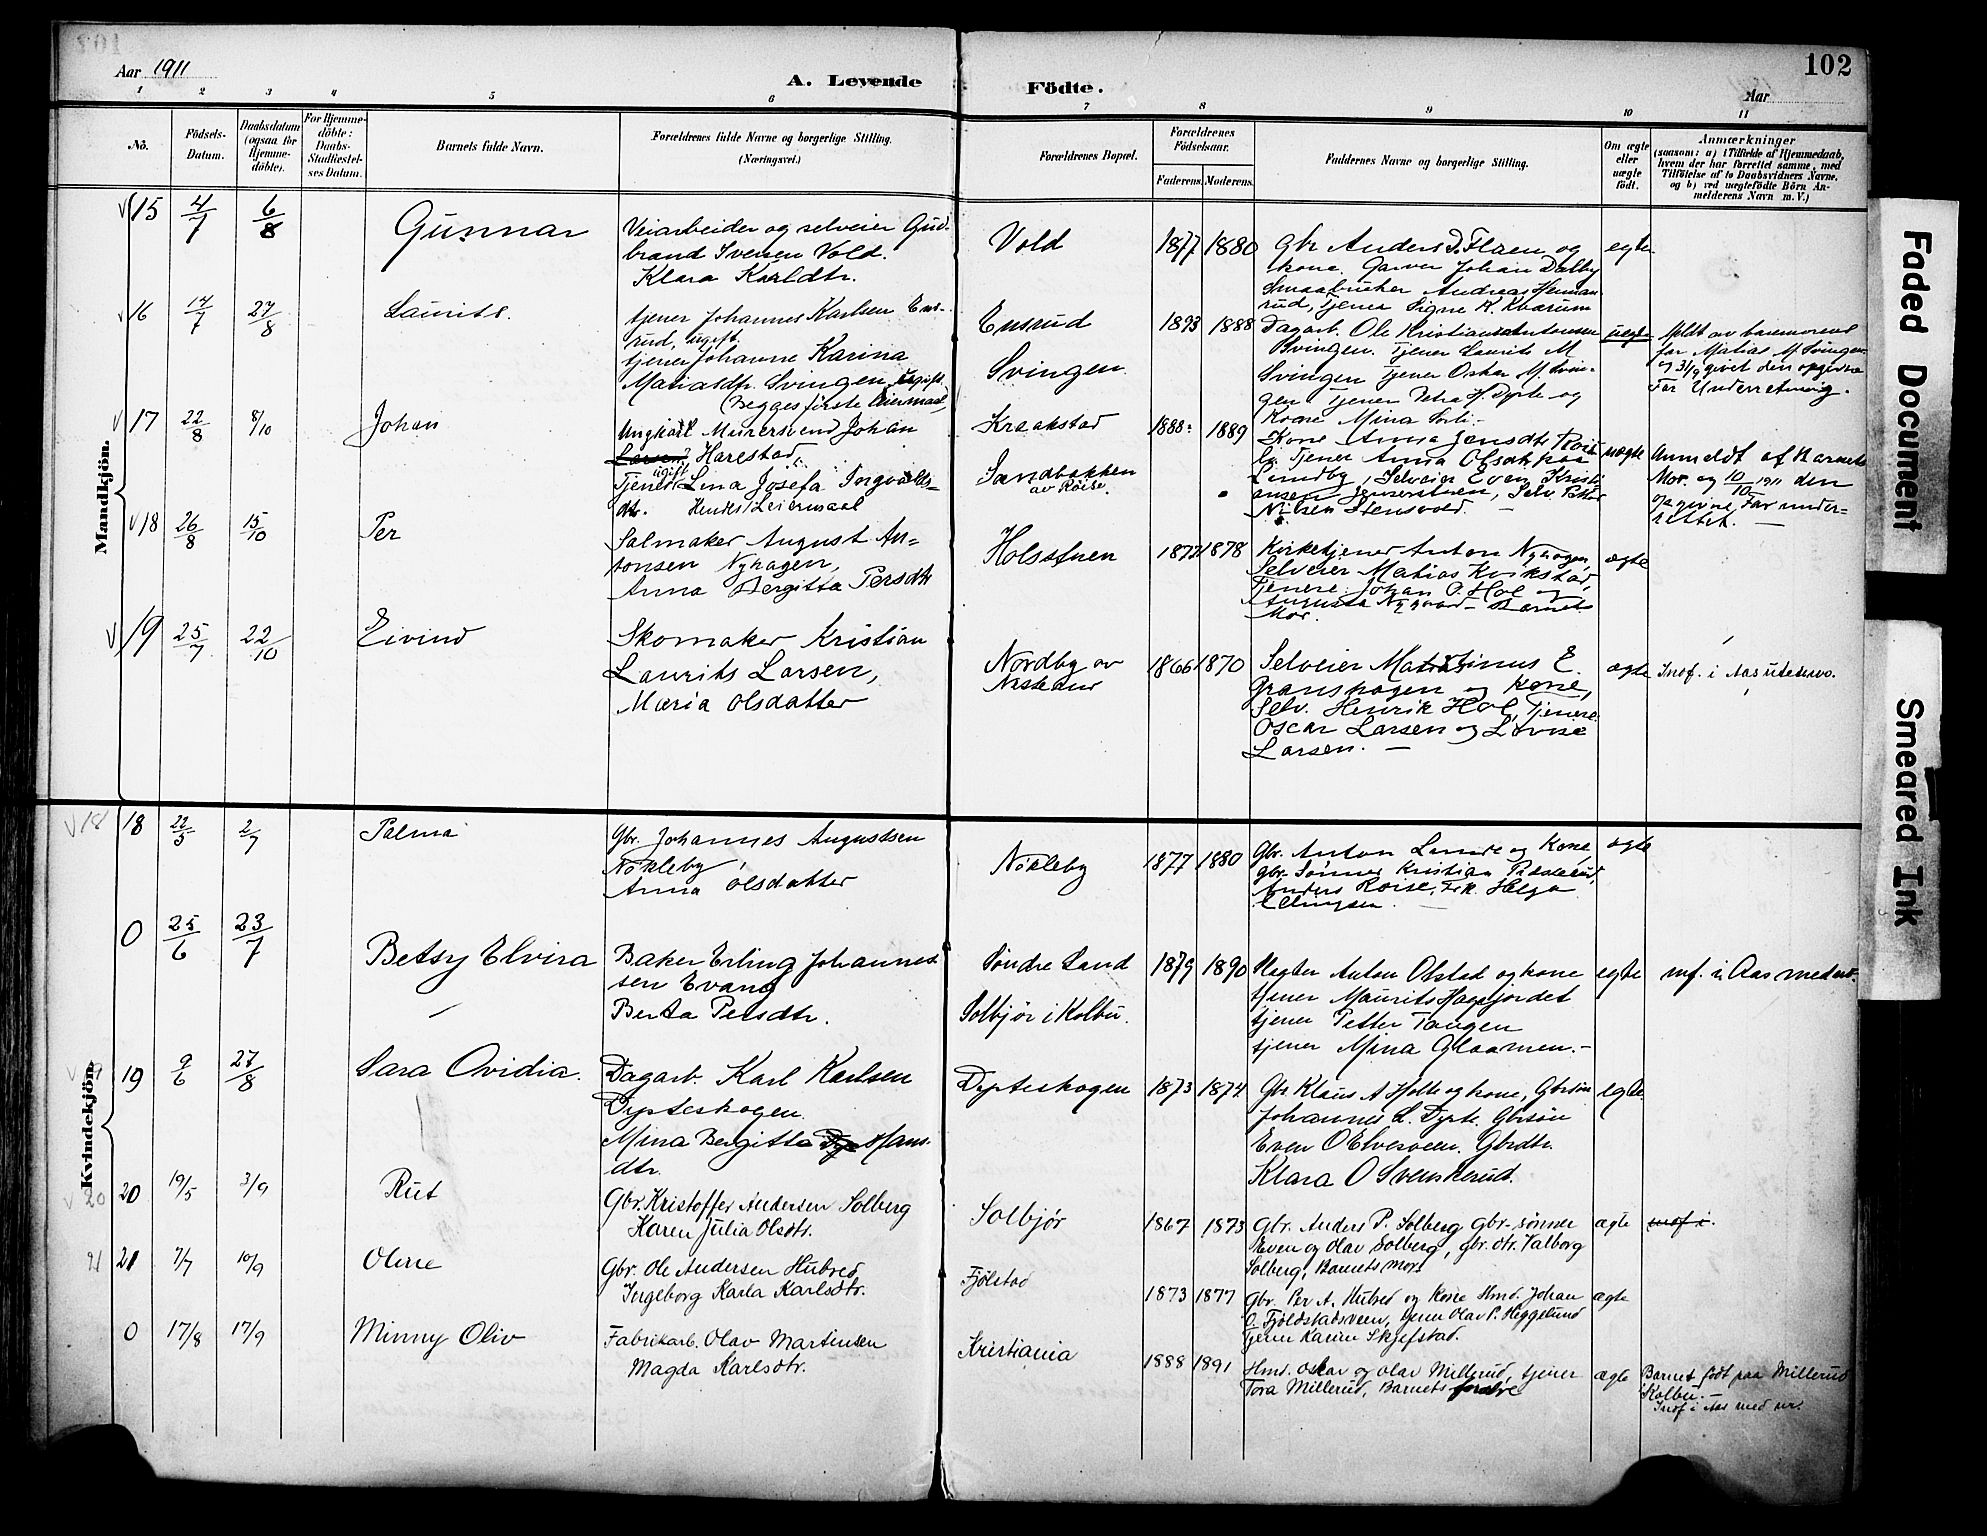 102
Aar 1911
A. Levende Födte.
Aar
1 2 3 4 5 6 7 8 9 10 11
Nô.
Födsels-
Datum.
Daabsdatum
(ogsaa for
Hjemme-
döbte).
For Hjemme-
döbte:
Daabs-
Stadfæstel-
ses Datum.
Barnets fulde Navn.
Forældrenes fulde Navne og borgerlige Stilling.
(Næringsvei.)
Forældrenes Bopæl.
Forældrenes
Födselsaar.
Faderens. Moderens.
Faddernes Navne og borgerlige Stilling.
Om ægte
eller
uægte
födt.
Anmærkninger
(saasom: a) i Tilfælde af Hjemmedaab,
hvem der har forrettet samme, med
Tilföielse af to Daabsvidners Navne,
og b) ved uægtefödte Börn An-
melderens Navn m. V.)
Mandkjön.
15 4/7 6/8 Gunnar
Veiarbeider og selveier Gud-
brand Svenen Vold.
Klara Karldtr.
Vold 1877 1880
Gbr Anders D. Flxen og
kone. Garver Johan Dalby
Smaabruker Andreas Heman-
rud, Tjener Signe K. Kvarum
egte
16 17/7 27/8 Laurits.
tjener Johannes Karlsen Ens-
rud, ugift.
tjener Johanne Karina
Matiasdtr. Svingen, ugift.
(Begges første leiermaal)
Ensrud
Svingen
1893 1888
Dagarb. Ole Kristian Antonsen
Svingen. Tjener Laurits M
Svingen Tjener Oskar M. Svin-
gen Tjener Petra H. Dyste og
Kone Mina
uegte
Meldt av barnemoren
for Matias M Svingen
og 31/9 givet den opgivne
Far Underretning.
17 22/8 8/10 Johan
Ungkarl Murersvend Johan
Larsen Harestad,
ugift
Tjener Lina Josefa Ingvalds-
dtr. Hendes Leiermaal
Kraakstad
Sandbakken
av Røise.
1888 1889
Kone Anna Jensdtr Røise
Tjener Anna Olsdtr
Lundby, Selveier Even Kristi-
ansen, Selv. Peter
Nilsen Stensvold.
uægte
Anmeldt af Barnets
Mor. og 10/10 1911 den
opgivne Far under-
rettet.
18 26/8 15/10 Per
Salmaker August An-
tonsen Nyhagen,
Anna Bergitta Persdtr
Holsstuen 1877 1878
Kirketjener Anton Nyhagen,
Selveier Matias Kvikstad,
Tjenere Johan O. Hol og
Augusta Nygaard - Barnets
Mor.
ægte
19 25/7 22/10 Eivind
Skomaker Kristian
Laurits Larsen,
Maria Olsdatter
Nordby av
1866 1870
Selveier Martinus E.
Granshagen og Kone,
Selv. Henrik Hol, Tjenere
Oscar Larsen og Lovise
Larsen.
ægte
Indf. i Aas
Kvindekjön.
18 18 22/5 2/7 Palma
Gbr. Johannes Augustsen
Nökleby,
Anna Olsdatter
Nökleby 1877 1880
Gbr. Anton Lunde og Kone,
gbr. Sønner Kristian
Anders Roise, Frk. Helga
Ellingsen.
ægte
0 25/6 23/7 Betsy Elvira
Baker Erling Johannes
sen Evang
Berta Persdtr.
Søndre Land
Solbjør i Kolbu.
1879 1890
Slagter Anton Olstad og kone
tjener Maurits Hagejordet
tjener Petter Tangen
tjener Mina Glaamen.-
egte
inf. i Aas med nr.
19 9/6 27/8 Sara Ovidia.
Dagarb. Karl Karlsen
Dysteskogen.
Mina Bergitte Hans-
dtr.
Dysteskogen 1873 1874
Gbr Klaus A Holte og kone, Gbrsön
Johannes L. Dyste. Gbrsön
Even O Elvesveen. Gbrdtr.
Klara O Svenskerud.
egte
20 20 19/5 3/9 Rut
Gbr. Kristoffer Andersen Solberg
Karen Julia Olsdtr.
Solbjør 1867 1873
Gbr. Anders P. Solberg gbr-sønner
Even og Olav Solberg, gbr. dtr. Valborg
Solberg, Barnets mor.
ægte
indf i.
21 21 7/7 10/9 Oline
Gbr. Ole Andersen Hubred
Ingeborg Karla Karlsdtr.
Fjølstad 1873 1877
Gbr. Per A. Hubred og Kone Hmd. Johan
O. Fjöldstadsveen, tjener Olav P. Heggelund
Tjener Karin Skjefstad.
ægte
0 17/8 17/9 Minny Oliv
Fabrikarb. Olav Martinsen
Magda Karlsdtr.
Kristiania 1888 1891
Hmd. Oskar og Olav Millerud, tjener
Tora Millerud, Barnets foreldre
ægte
Barnet født paa Millerud
i Kolbu.-
Indf i Aas med nr.
Faded Document
Smeared Ink